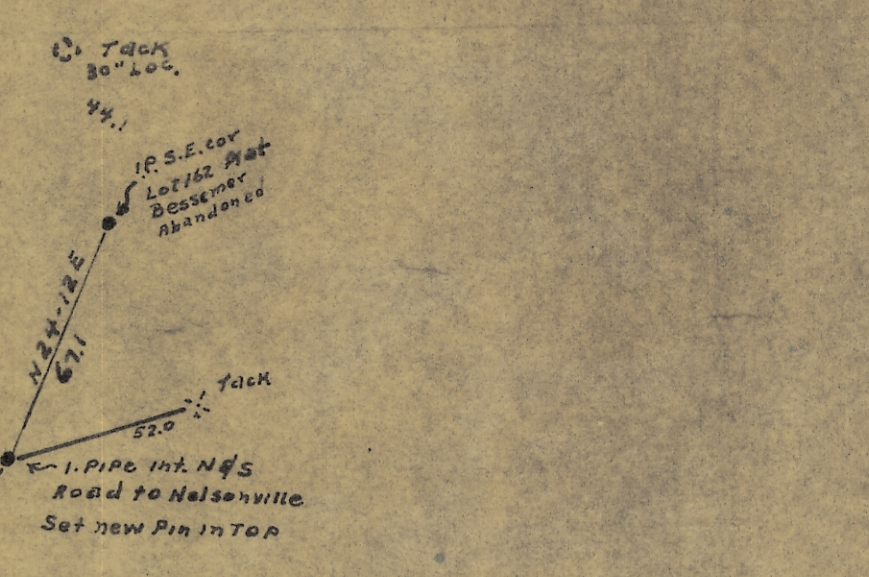 Tack
30" Loc.
44.1
I.P. S.E. cor
Lot 162 Plat
Bessemer
Abandoned
N24-12E
67.1
Tack
52.0
1. PIPE Int. N&S
Road to Nelsonville
Set new Pin in TOP